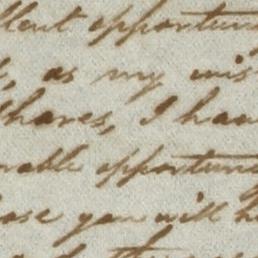 llent opportun
, as my wis
shares, I hav
rable opportun
ose you will h